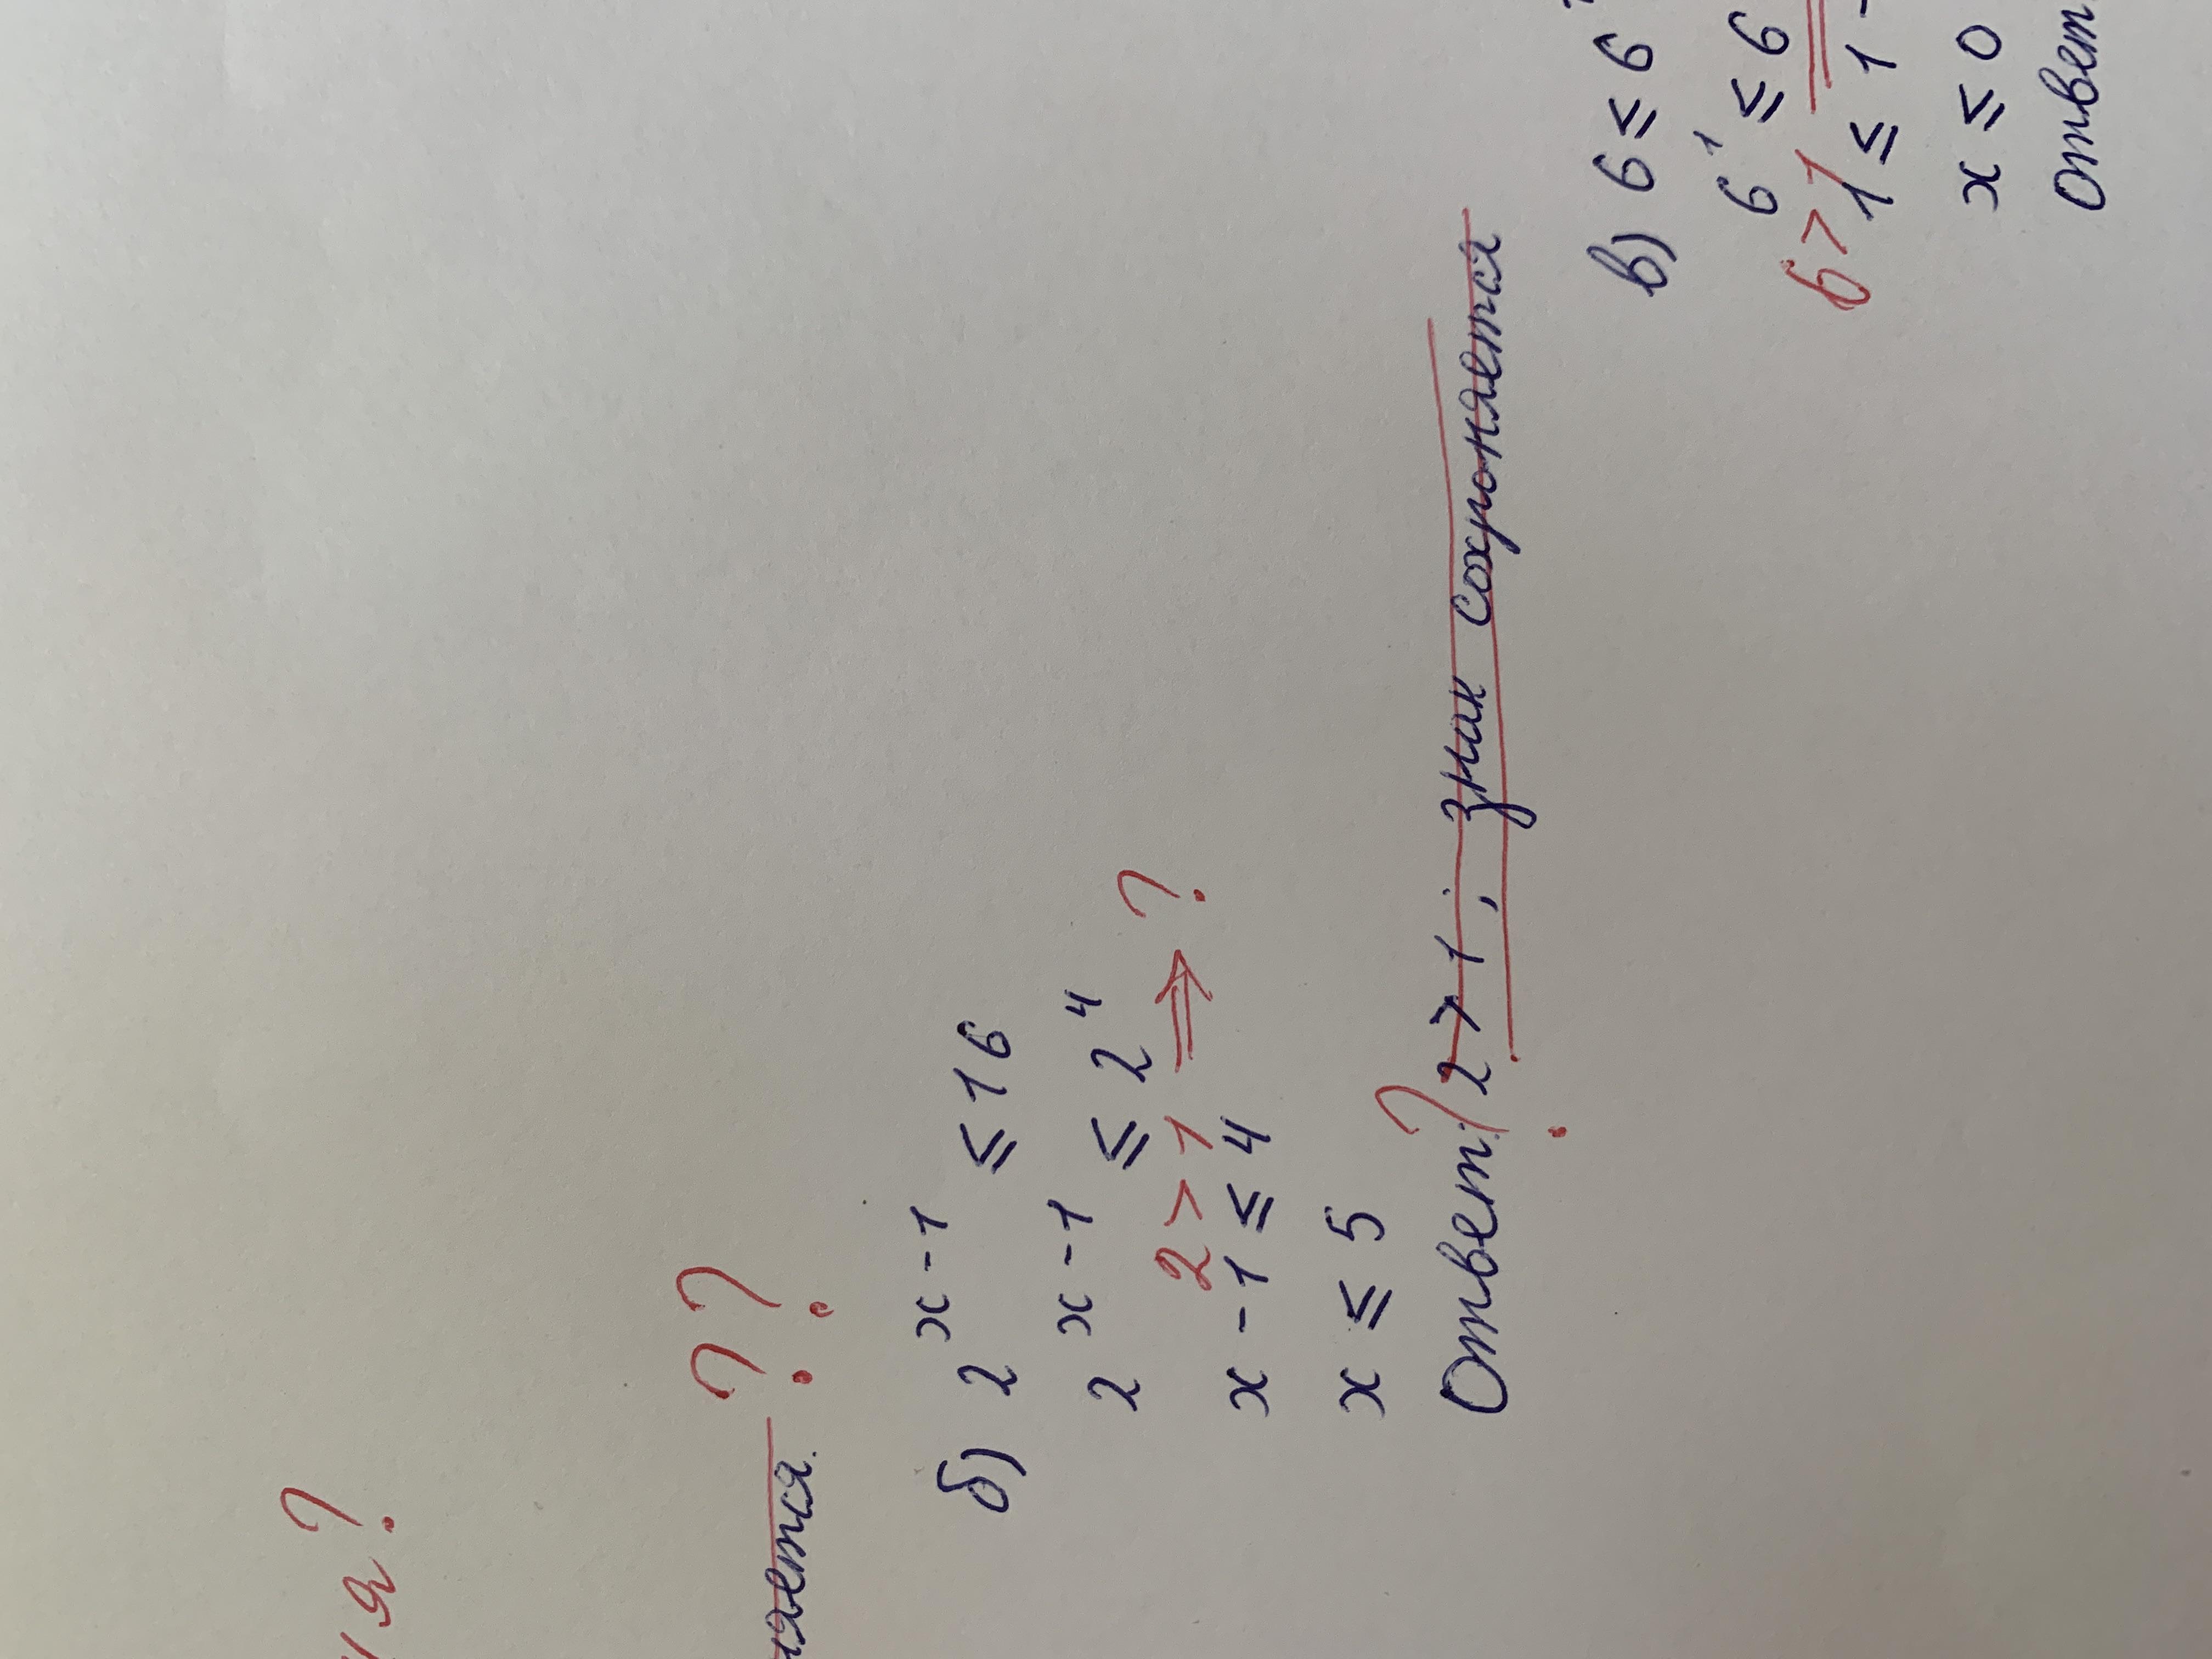 ??
б) 2^(x-1) ≤ 16
2^(x-1) ≤ 2^4
2 > 1 ⇒ ?
x - 1 ≤ 4
x ≤ 5
Ответ: ? 2 > 1; знак сохроняется
в) 6 ≤ 6
6^1 ≤ 6
6 > 1
1 ≤ 1 -
x ≤ 0
Ответ: